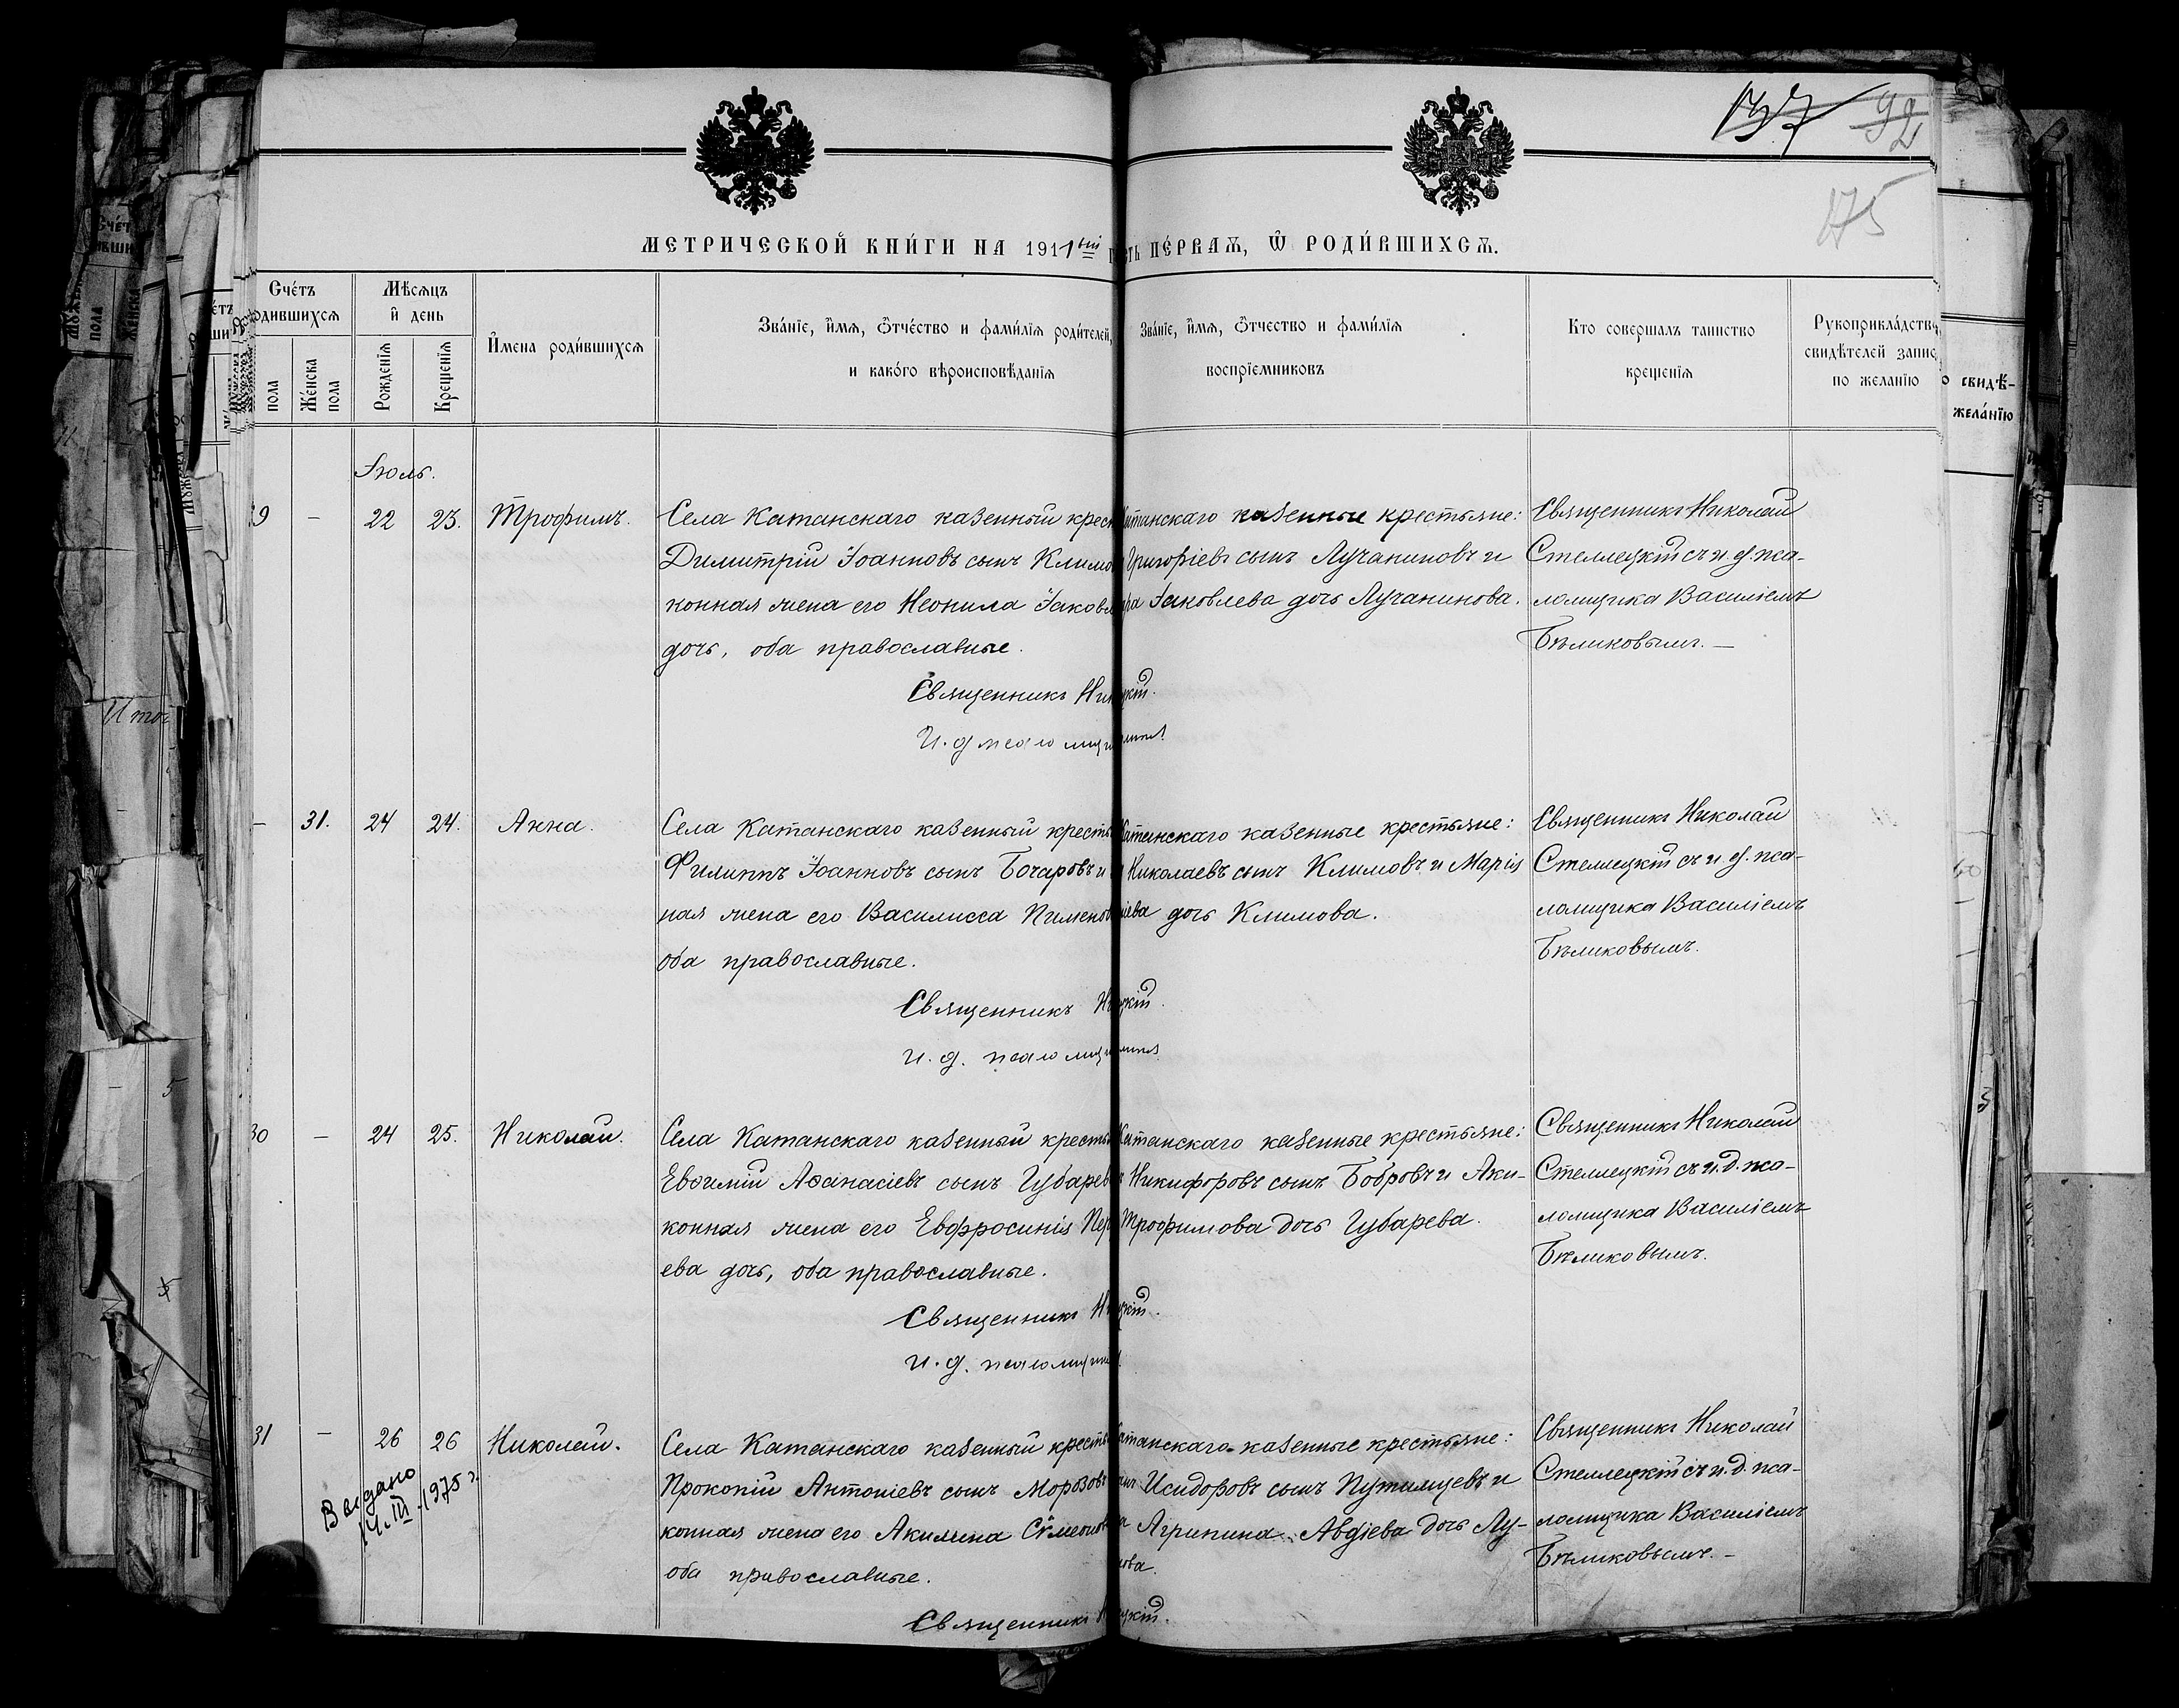 137 92
175
МЕТРИЧЕСКОЙ КНИ́ГИ НА 1911ый
ПЕ́РВАѦ, Ѿ РОДИ́ВШИХСѦ.
Счéтъ
одившихсѧ
пола
Жéнска
пола
Мѣсѧцъ
и день
Рождéнїѧ
Крещéнїѧ
И́мена роди́вшихсѧ
Звáнїе, и́мѧ, ѻ҆тчество и фами́лїѧ роди́телей,
и какóго вѣроисповѣ́данїѧ
Звáнїе, и́мѧ, ѻ҆тчество и фами́лїѧ
воспрїемниковъ
Кто совершалъ таинство
крещенїѧ
Рукоприклáдство
свидѣтелей запис
по желанїю
о свидѣ-
желáнїю
Іюль.
29 – 22 23. Трофимъ.
Села Катанскаго казенный крест
Димитрій Іоанновъ сынъ Климо
конная жена его Неонила Іаковл
дочь, оба православные.
Священникъ Ни
И. д псаломщи
атанскаго казенные крестьяне:
Григоріевъ сынъ Лучаниновъ и
ра Іаковлева дочь Лучанинова.
цкій.
Священникъ Николай
Стеллецкій съ и. д. пса-
ломщика Василіемъ
Бѣликовымъ. –
– 31. 24 24. Анна.
Села Катанскаго казенный кресть
Филиппъ Іоанновъ сынъ Бочаровъ и
ная жена его Василисса Пименов
оба православные.
Священникъ Н
и. д. псаломщ
Катанскаго казенные крестьяне:
Николаевъ сынъ Климовъ и Марія
іева дочь Климова.
цкій.
Священникъ Николай
Стеллецкій съ и. д. пса-
ломщика Василіемъ
Бѣликовымъ.
30 – 24 25. Николай.
Села Катанскаго казенный кресть
Евѳимій Аѳанасіевъ сынъ Губарев
конная жена его Евфросинія Пер
ева дочь, оба православные.
Священникъ Н
и. д. псаломщи
Катанскаго казенные крестьяне:
Никифоровъ сынъ Бобровъ и Аки-
Трофимова дочь Губарева.
цкій.
Священникъ Николай
Стеллецкій съ и. д. пса-
ломщика Василіемъ
Бѣликовымъ.
31 – 26 26 Николай.
Выдано
14. III. 1975 г.
Села Катанскаго казенный кресть
Прокопій Антоніевъ сынъ Морозовъ
конная жена его Акилина Сѵмеонов
оба православные.
Священникъ Н
атанскаго казенные крестьяне:
Исидоровъ сынъ Путилцевъ и
а Агрипина Авдіева дочь Лу-
нова.
цкій.
Священникъ Николай
Стеллецкій съ и. д. пса-
ломщика Василіемъ
Бѣликовымъ. –